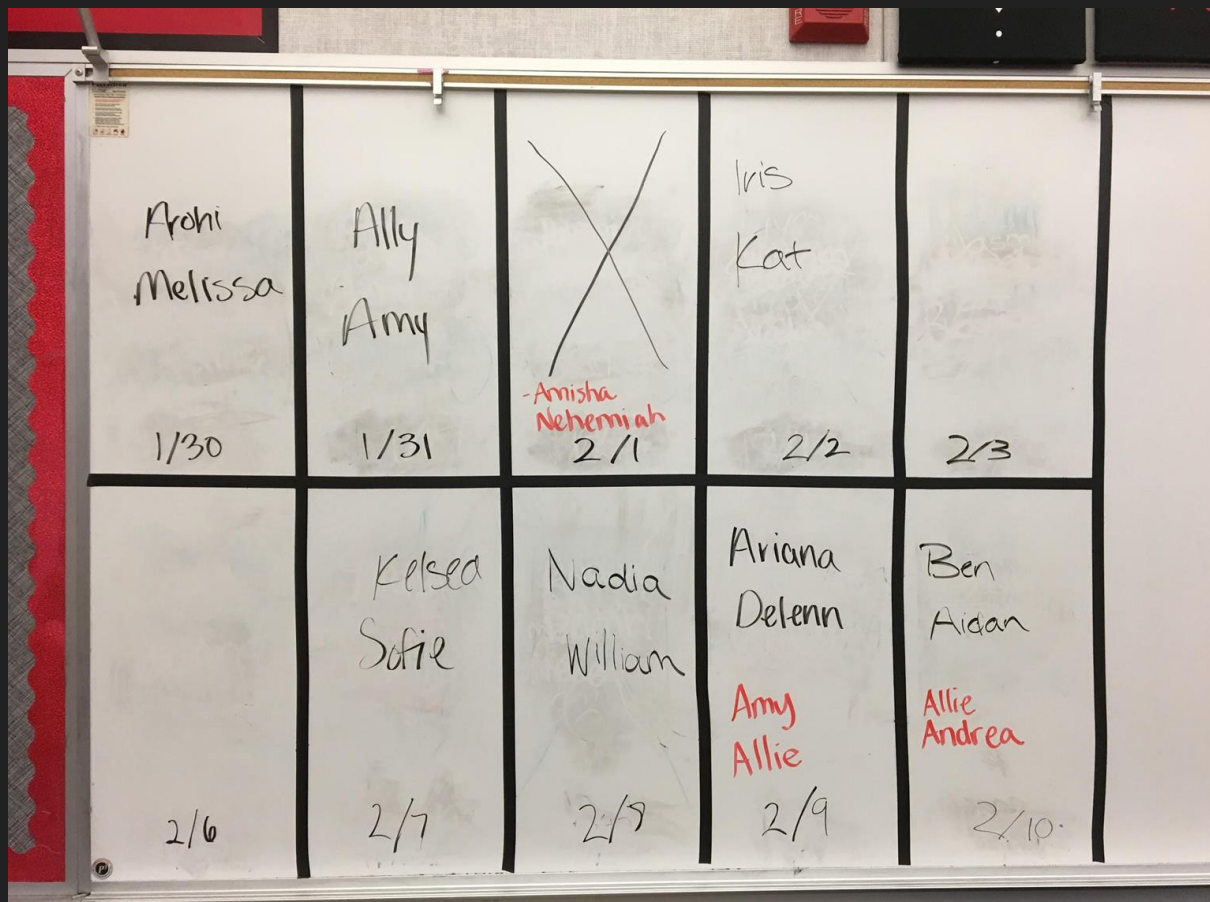 Arohi
Melissa
1/30
Ally
Amy
1/31
-Amisha
Nehemiah
2/1
Iris
Kat
2/2
2/3
2/6
Kelsea
Sofie
2/7
Nadia
William
2/8
Ariana
Delenn
Amy
Allie
2/9
Ben
Aidan
Allie
Andrea
2/10